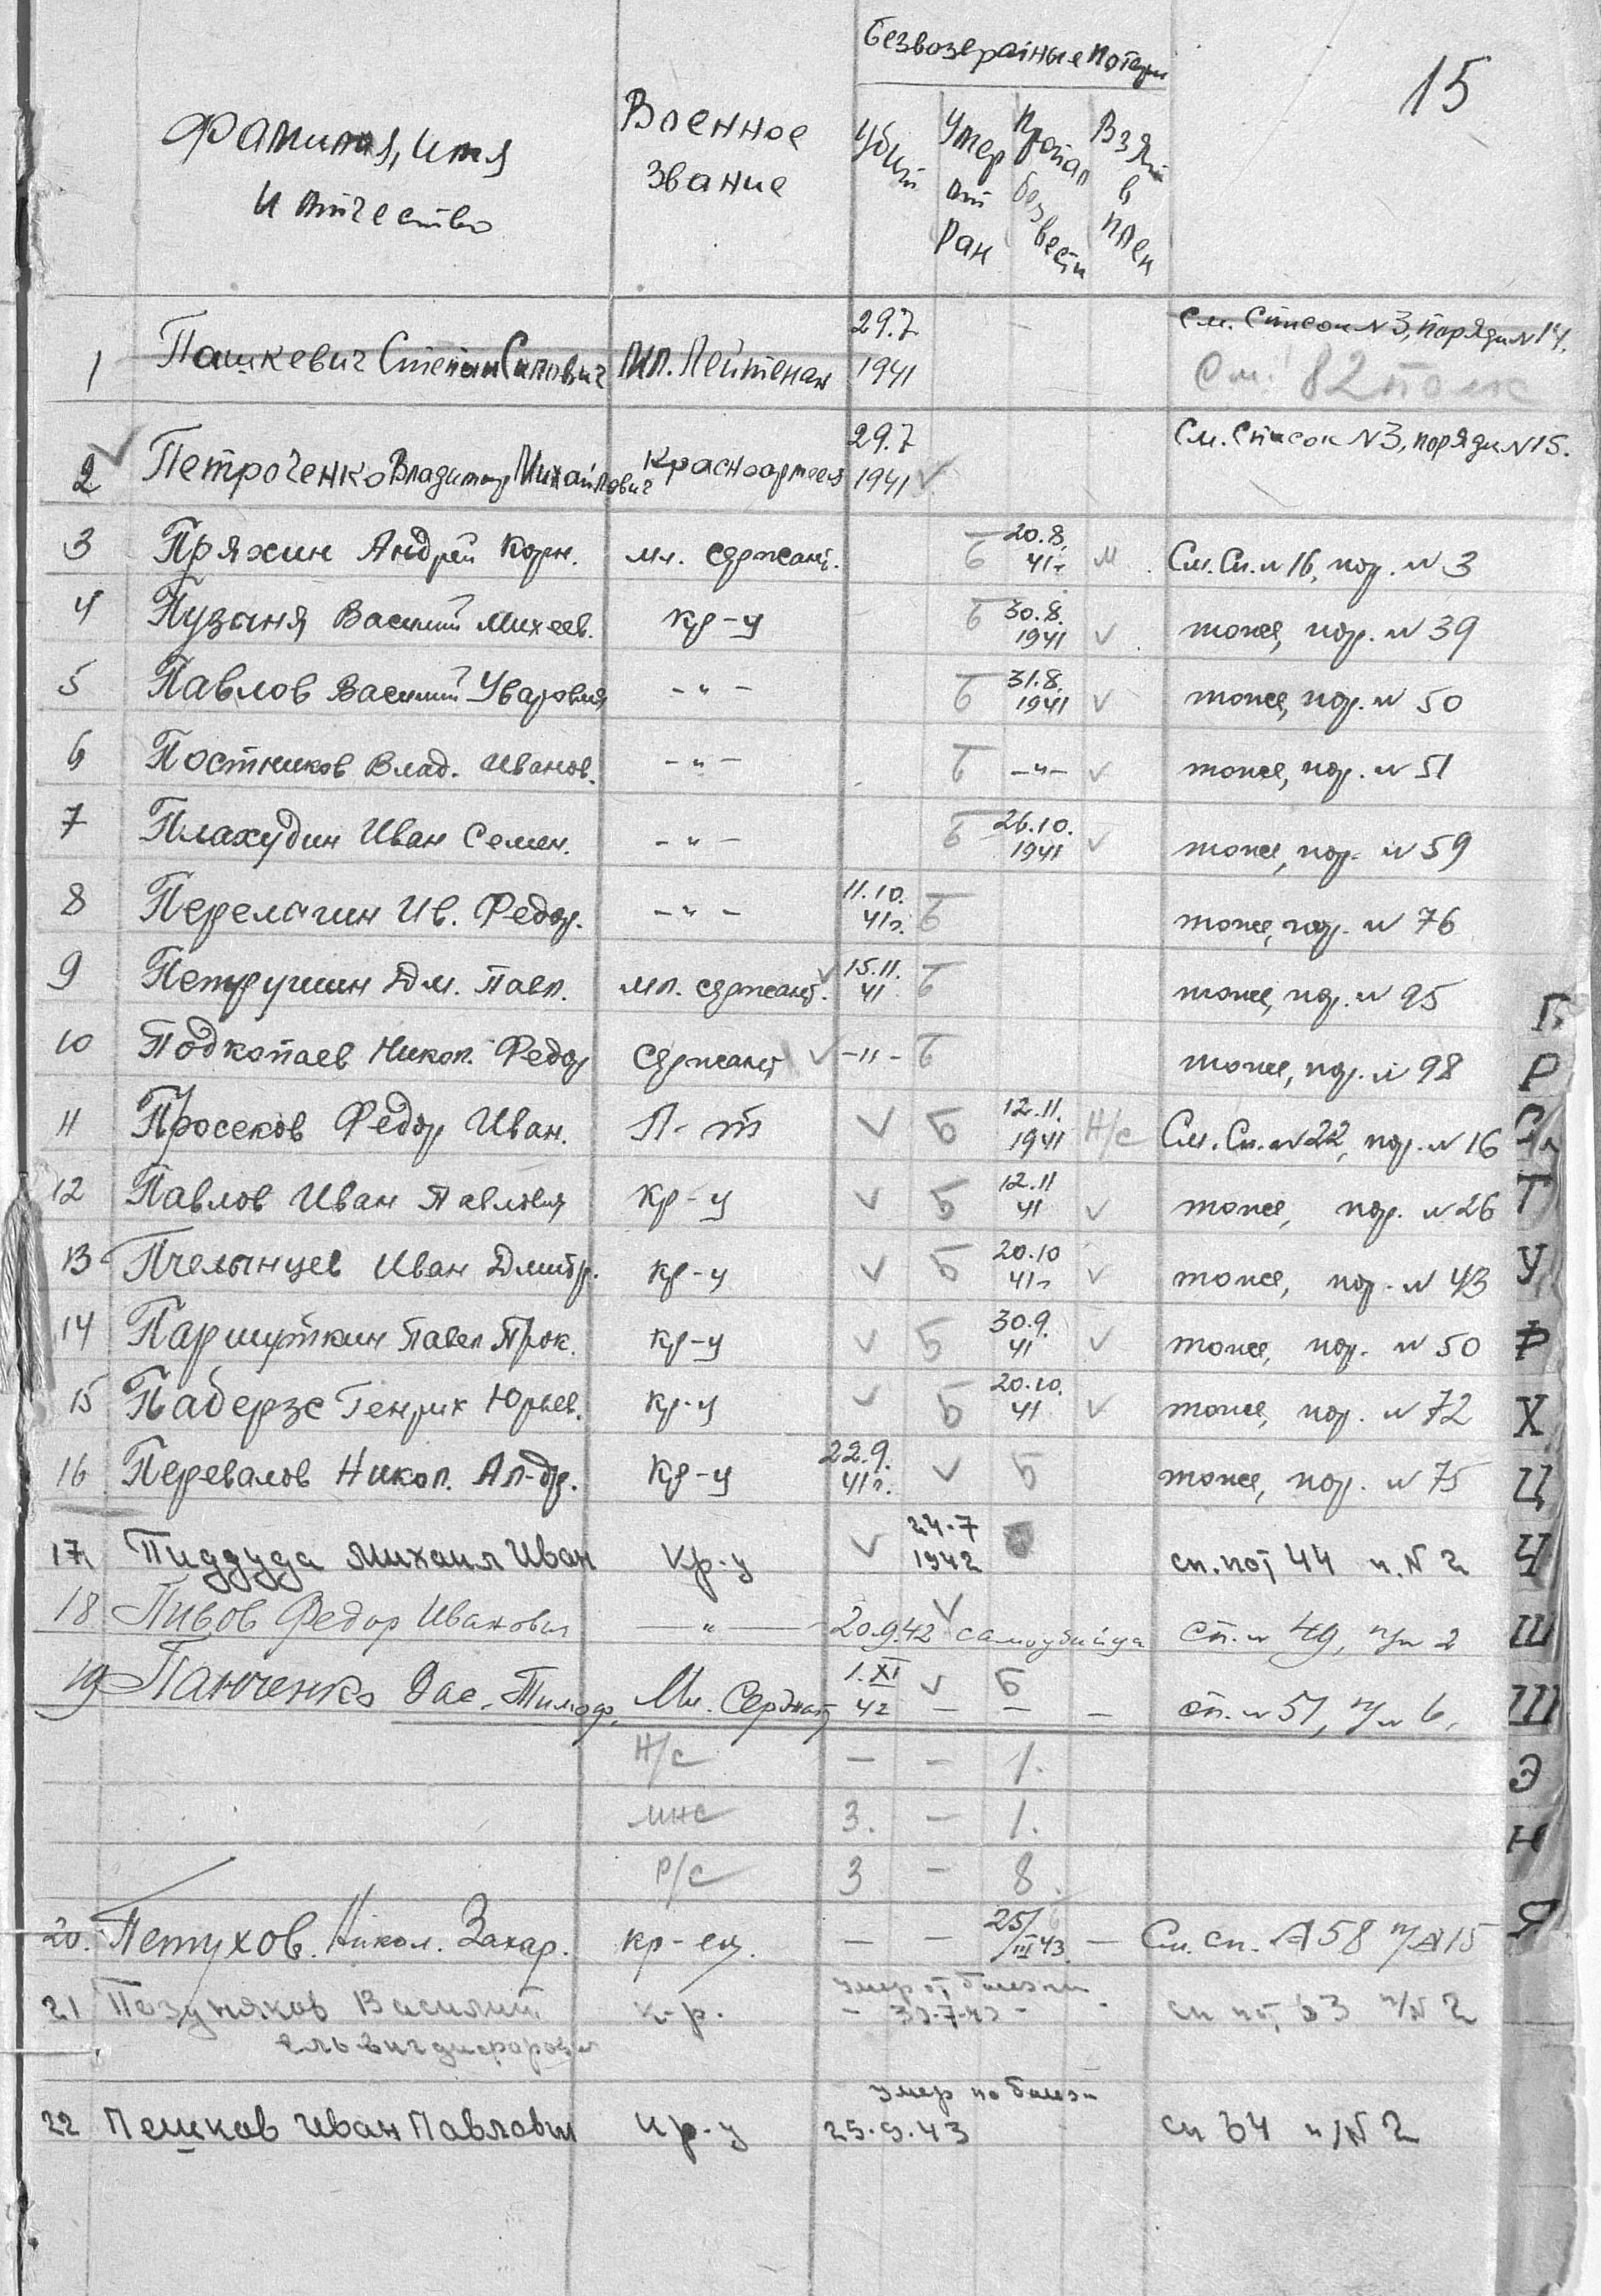 15
Безвозвратные потери
Фамилия, имя и отчество
Военное звание
Убит
Умер от ран
Пропал без вести
Взят в плен
1 Пашкевич Степан мл. Лейтенан 29.7 1941 См. Список N 3, порядк N 14.
См. 82 полк
2 Петроченко Владимир Михайлович Красноармеец 29.7 1941 См. Список N 3, порядк N 15.
3 Пряхин Андрей Корн. мл. сержант. Б 20.8. 41г. м См. Сп. N 16, пор. N 3
4 Пузыня Василий Михеев. кр-ц Б 30.8. 1941 тоже, пор. N 39
5 Павлов Василий Уварович -"- Б 31.8. 1941 тоже, пор. N 50
6 Постников Влад. Иванов. -"- Б -"- тоже, пор. N 51
7 Плахудин Иван Семен. -"- Б 26.10. 1941 тоже, пор. N 59
8 Перелыгин Ив. Федор. -"- 11.10. 41г. Б тоже, пор. N 76
9 Петрушин Дм. Павл. мл. сержант. 15.11. 41 Б тоже, пор. N 95
10 Подкопаев Никол. Федор Сержант -"- Б тоже, пор. N 98
11 Просеков Федор Иван. Л-т Б 12.11. 1941 Н/с См. Сп. N 22, пор. N 16
12 Павлов Иван Павлович кр-ц Б 12.11 41 тоже, пор. N 26
13 Пчелынцев Иван Дмитр. кр-ц Б 20.10 41г тоже, пор. N 43
14 Паршуткин Павел Прок. кр-ц Б 30.9. 41 тоже, пор. N 50
15 Падерзс Генрих Юрьев. кр-ц Б 20.10. 41 тоже, пор. N 72
16 Перевалов Никол. Ал-др. кр-ц 22.9. 41г. Б тоже, пор. N 75
17 Пиддуда Михаил Иван кр-ц 24.7 1942 сп. пот 44 п. N 2
18 Пивов Федор Иванович -"- 20.9.42 самоубийца сп. N 49, п/н 2
19 Панченко Вас. Тимоф. Мл. Сержант 1.XI 42 Б - - - сп. N 51, п/н 6.
Н/с - - 1.
МНС 3. - 1.
Р/с 3 - 8.
20. Петухов. Никол. Захар. кр-ец. - - 25/III 43 - См. сп. N 58 п/N 15
21 Василий к-р. умер от болезни - 30-7-43 - сп пот 53 п/N 2
22 Пешков Иван Павлович кр-ц умер по болезн 25.9.43 сп 54 п/N 2
П
Р
С
Т
У
Ф
Х
Ц
Ч
Ш
Щ
Э
Ю
Я